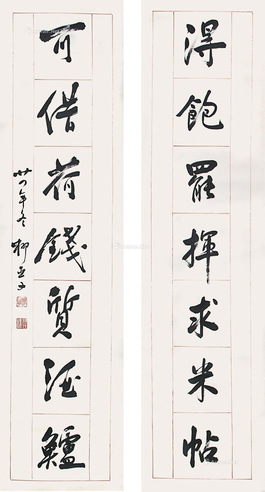 得飽罷揮求米帖
可借荷錢質酒鱸
廿四年冬 柳亞子